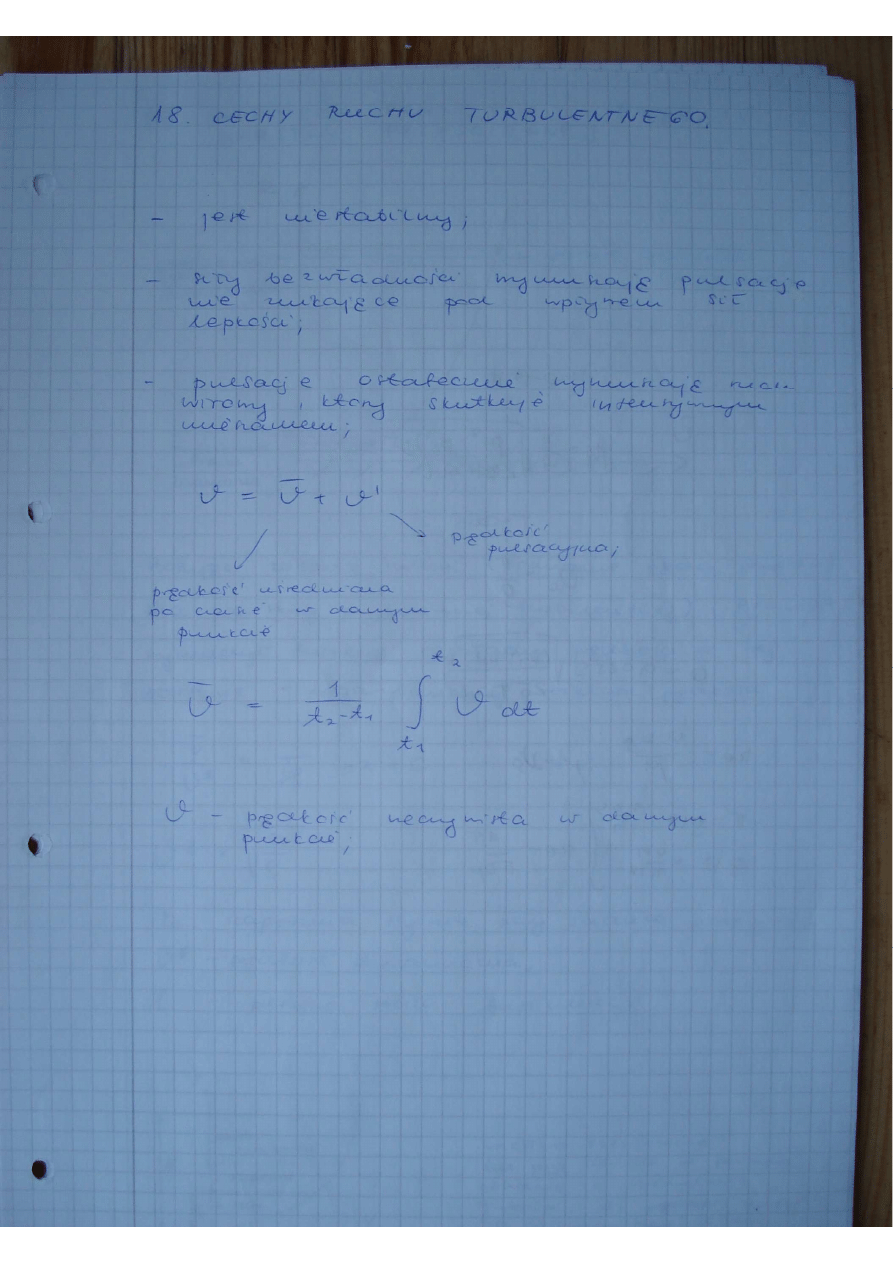 18. CECHY RUCHU TURBULENTNEGO.
- jest niestabilny;
- siły bezwładności wymuszają pulsacje
nie znikające pod wpływem sił
lepkości;
- pulsacje ostatecznie wymuszają ruch
wirowy, który skutkuje intensywnym
mieszaniem;
ϑ = ϑ̅ + ϑ'
prędkość
pulsacyjna;
prędkość uśredniona
po czasie w danym
punkcie
ϑ̅ = 1/(t₂-t₁) ∫_{t₁}^{t₂} ϑ dt
ϑ - prędkość rzeczywista w danym
punkcie;